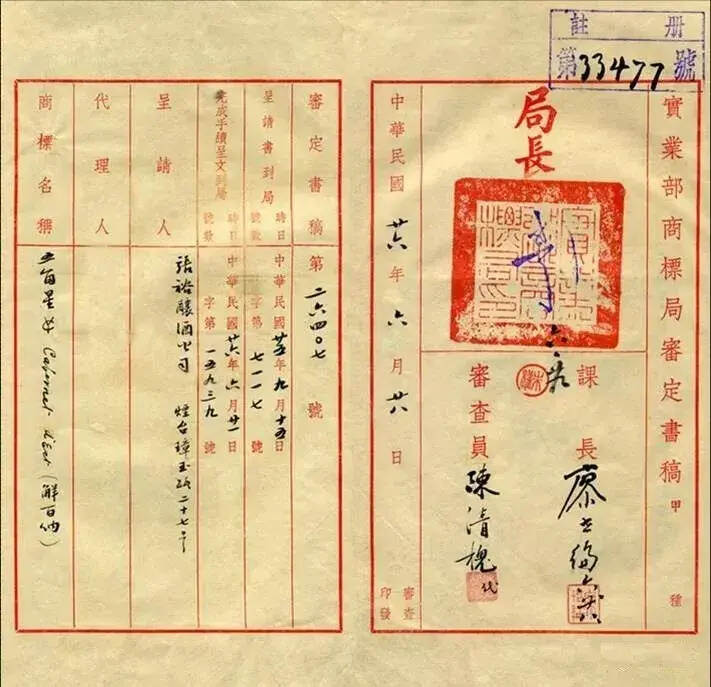 註冊
第33477號
實業部商標局審定書稿 甲種
局長
課長
審查員 陳清槐 代
中華民國廿六年六月廿八日
審查印發
審定書稿 第二六四〇七號
呈請書到局 時日 中華民國廿五年九月十五日
號數 字第七一一七號
完成手續呈文到局 時日 中華民國廿六年六月廿一日
號數 字第一五九三九號
呈請人 張裕釀酒公司 煙台璋玉路二十七號
代理人
商標名稱 五角星及 Cabernet (解百納)